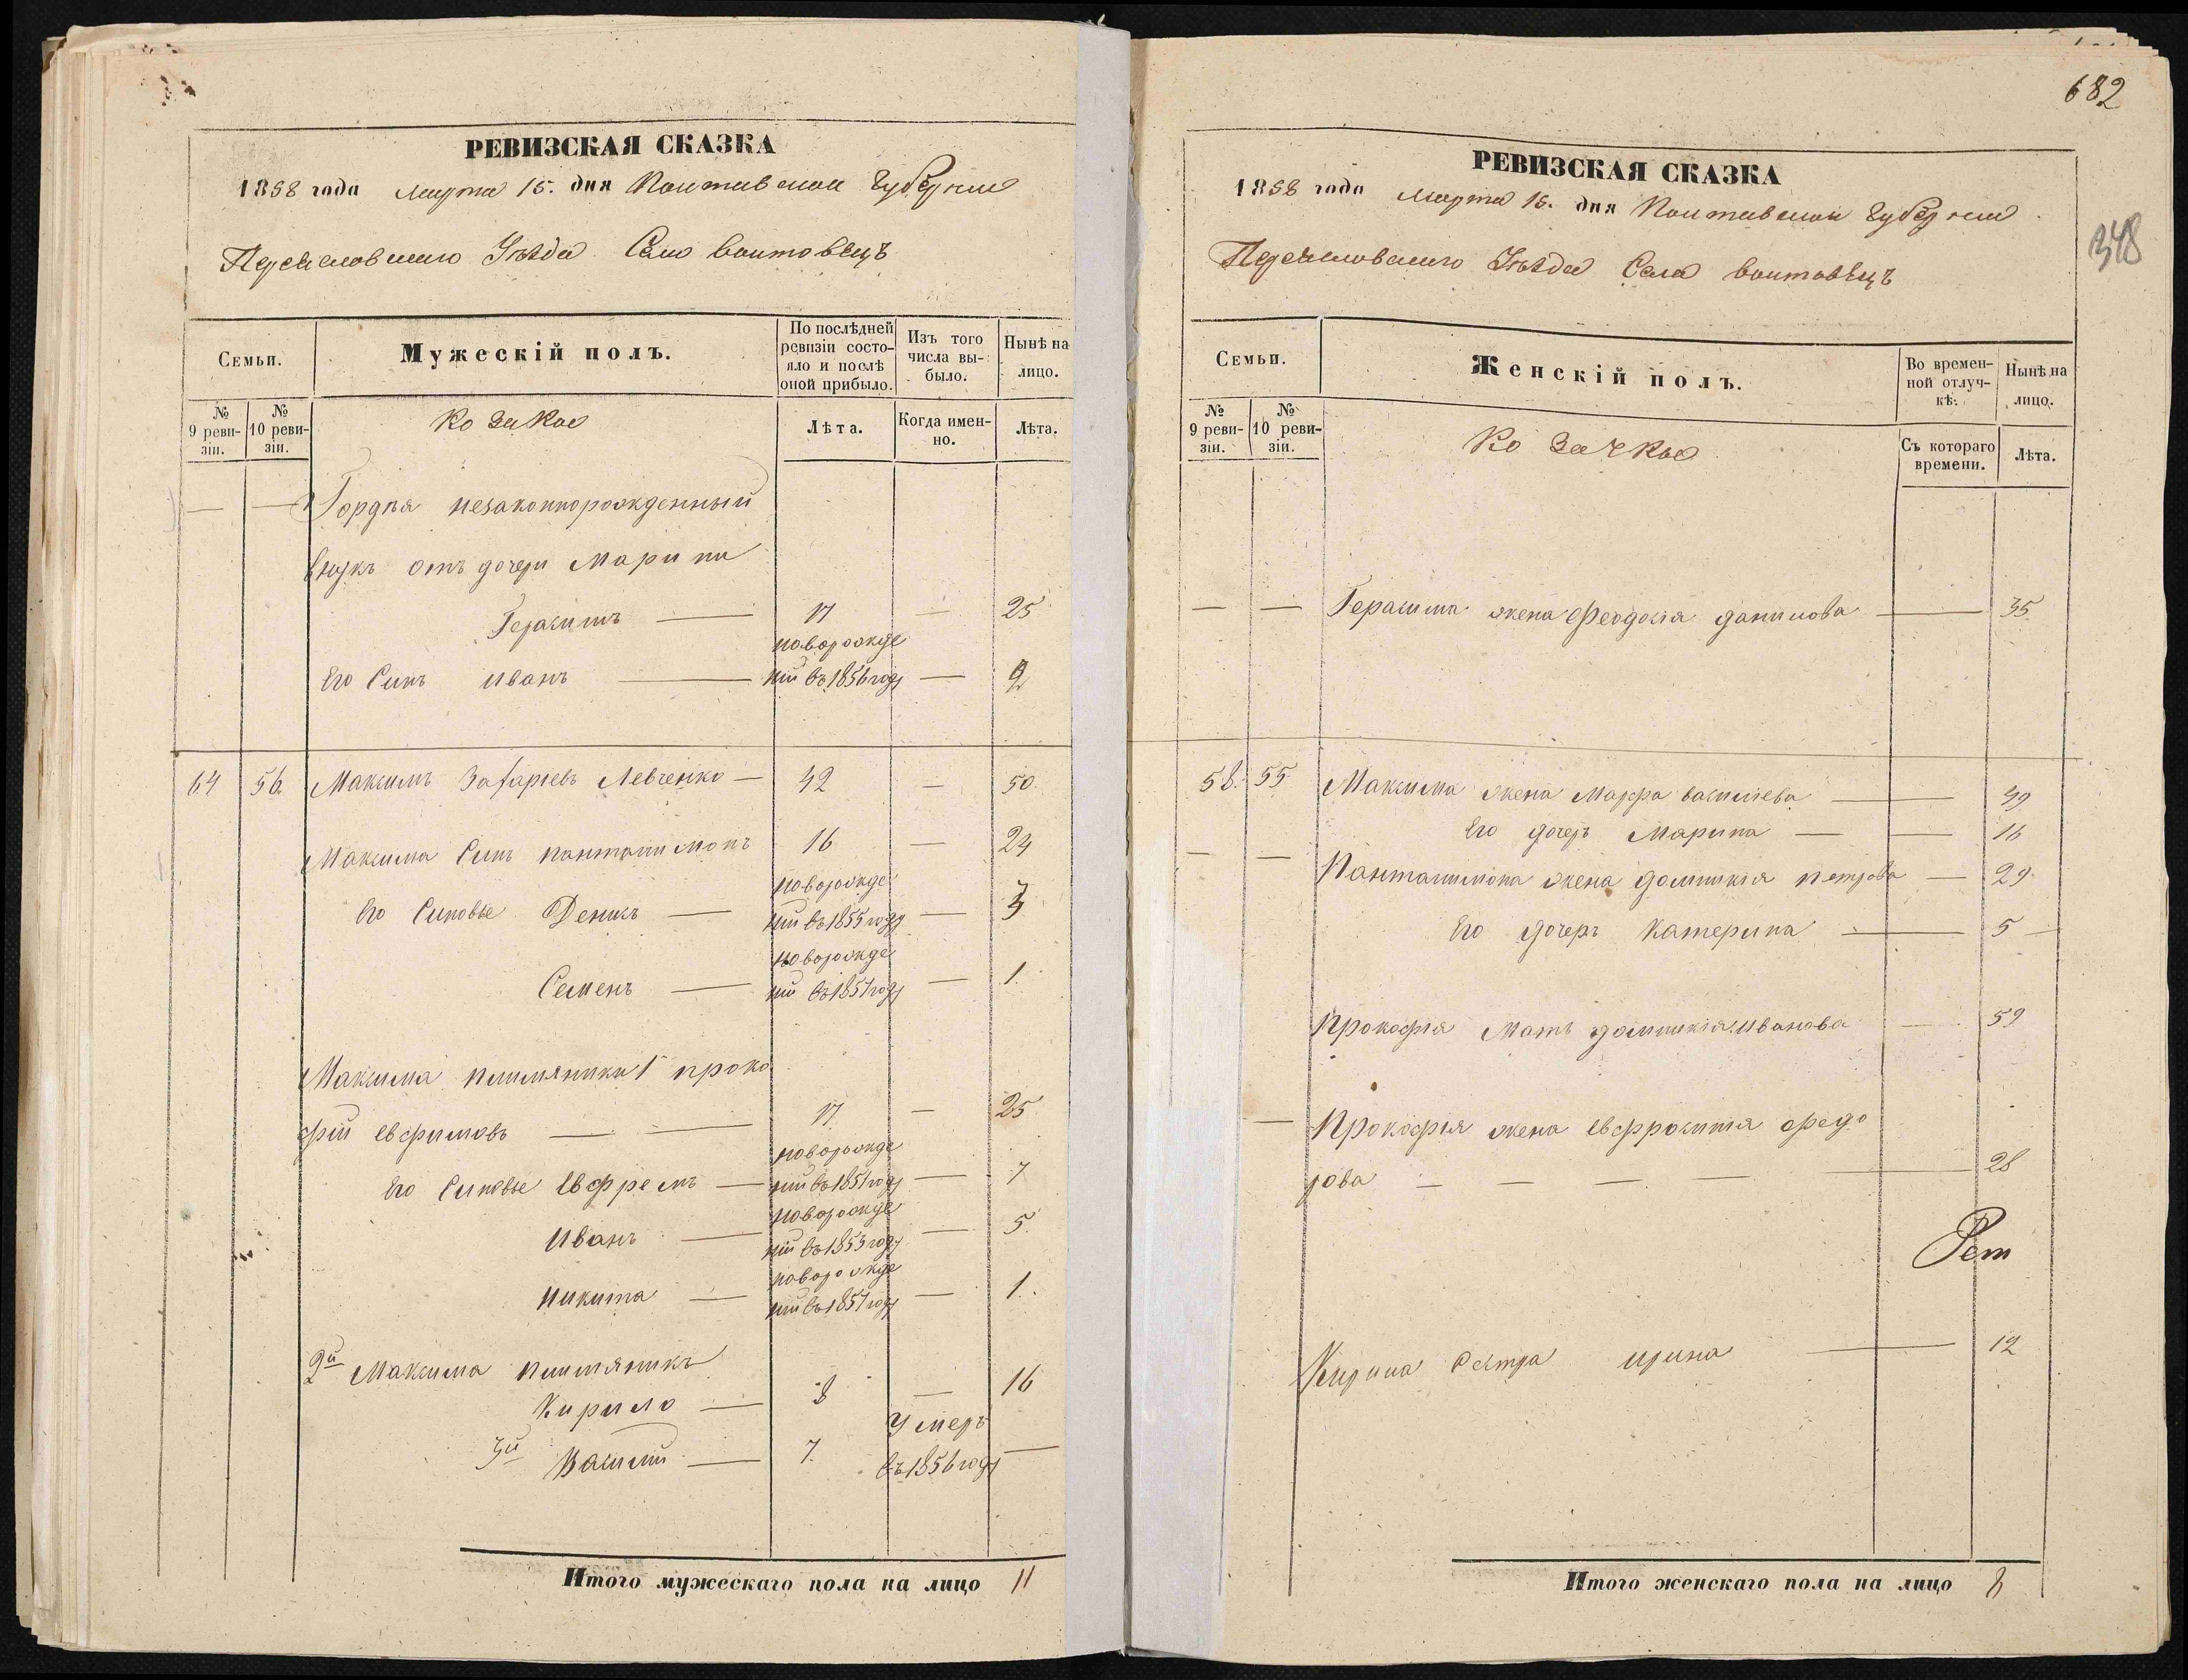 РЕВИЗСКАЯ СКАЗКА
1858 года Марта 15. дня Полтавской Губернии
Переяславского Уѣзда Села Воитовѣцъ
Семьи.
Мужескій полъ.
По послѣдней ревизіи состо-
яло и послѣ
оной прибыло.
Изъ того
числа вы-
было.
Нынѣ на
лицо.
№
9 реви-
зіи.
№
10 реви-
зіи.
Козаки
Лѣта.
Когда имен-
но.
Лѣта.
— — Гордѣя незаконнорожденный
внукъ отъ дочери Марины
Герасимъ — 17 — 25
новорожде
Его Синъ Иванъ — ній въ 1856 году — 2
64 56 Максимъ Захаріевъ Левченко — 42 — 50
Максима Синъ Пантилимонъ 16 — 24
новорожде
Его Синовье Денисъ — ній въ 1855 году — 3
новорожде
Семенъ — ній въ 1857 году — 1.
Максима племяники 1 Проко
фій Евфимовъ — — 17 — 25
новорожде
Его Синовье Евфремъ — ній въ 1851 году — 7
новорожде
Иванъ — ній въ 1853 году — 5
новорожде
Никита — ній въ 1857 году — 1.
2й Максима племяникъ
Кирило — 8 — 16
Умеръ
3й Василій — 7. въ 1856 году —
Итого мужескаго пола на лицо 11
682
348
РЕВИЗСКАЯ СКАЗКА
1858 года Марта 15. дня Полтавской Губернии
Переяславского Уѣзда Села Воитовѣцъ
Семьи.
Женскій полъ.
Во времен-
ной отлуч-
кѣ.
Нынѣ на
лицо.
№
9 реви-
зіи.
№
10 реви-
зіи.
Козачки
Съ котораго
времени.
Лѣта.
— — Герасима жена Феодосія Данилова — 35
58. 55 Максима жена Марфа Василіева — 49
Его дочерь Марина — — 16
— — Пантилимона жена Домникія Петрова — 29
Его дочерь Катерина — 5 —
Прокофія Мать Домникія Иванова — 59
— Прокофія жена Евфросинія Федо
рова — — — — 28
Кирила Сестра Ирина — 12
Итого женскаго пола на лицо 8